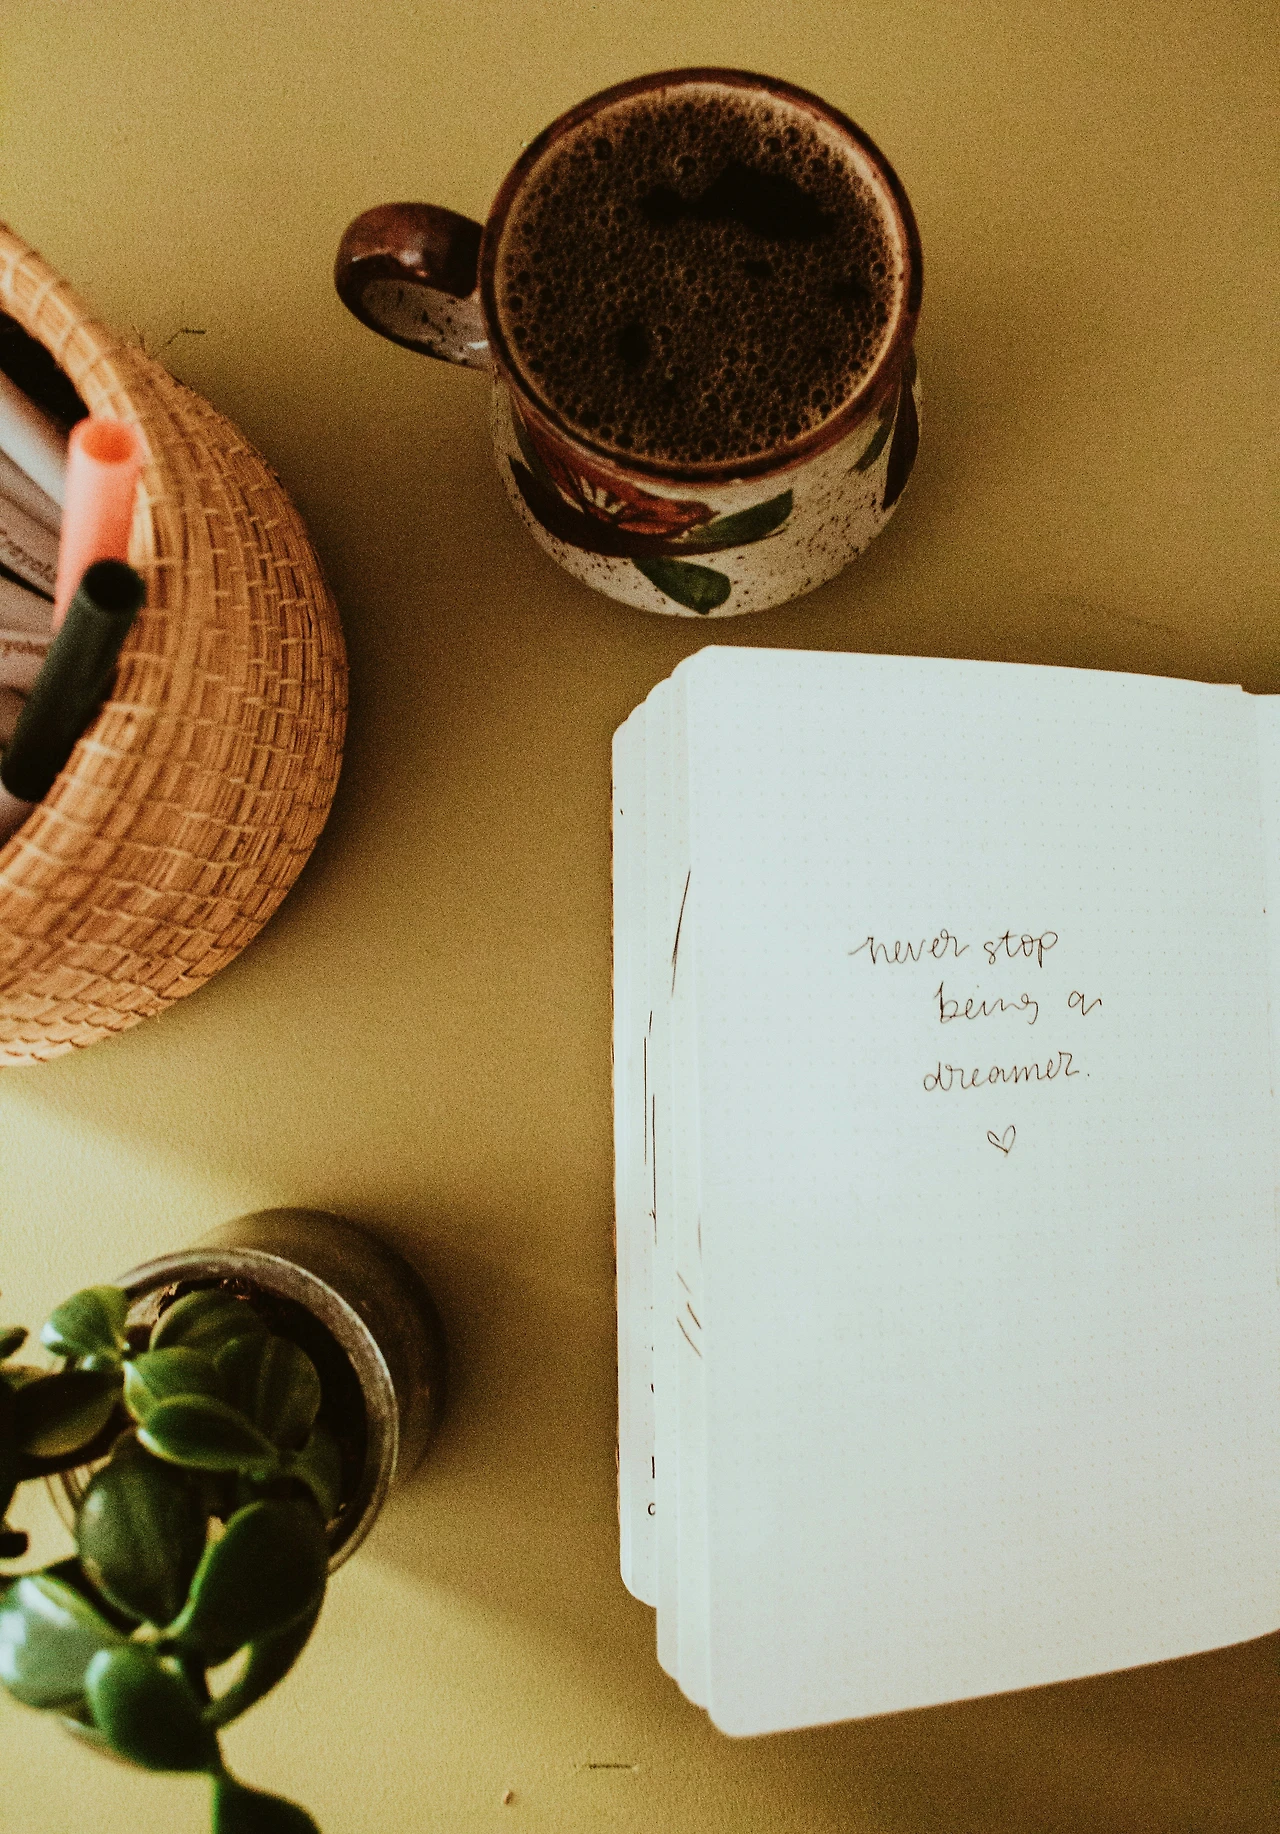 crayola
never stop
being a
dreamer.
♡